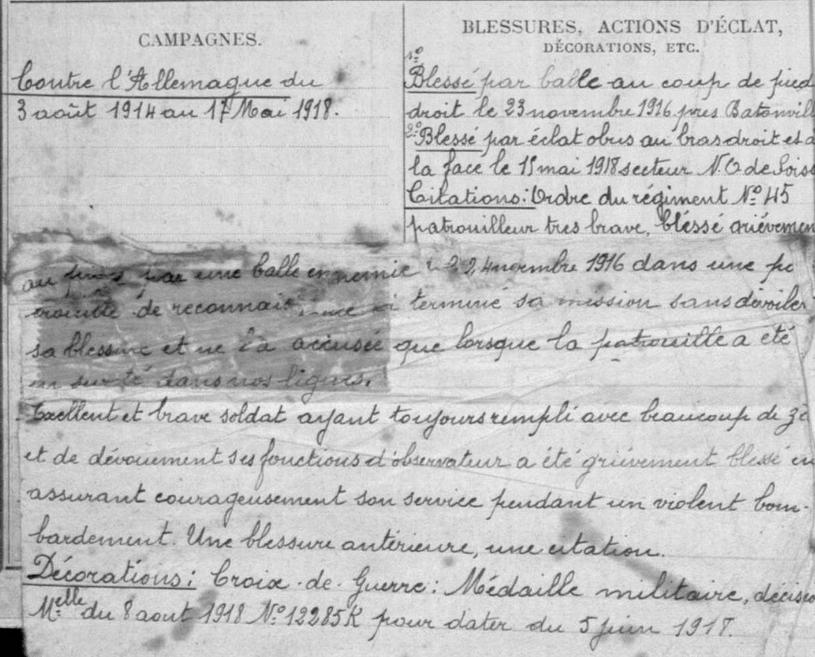 CAMPAGNES.
Contre l'Allemagne du
3 août 1914 au 17 Mai 1918.
BLESSURES, ACTIONS D'ÉCLAT,
DÉCORATIONS, ETC.
1º
Blessé par balle au coup de pied
droit le 23 novembre 1916 pres Batonvill
2º Blessé par éclat obus au bras droit et à
la face le 15 mai 1918 secteur N.O de Soiss
Citations: Ordre du régiment Nº 45
patrouilleur tres brave, bléssé griévemen
au par une balle ennemie 1916 dans une pa
trouille de terminé sa mission sans dévoiler
sa blessure et ne l'a accusée que lorsque la patrouille a été
en sureté dans nos lignes.
Excellent et brave soldat ayant toujours rempli avec beaucoup de zè
et de dévouement ses fonctions d'observateur a été griévement blessé en
assurant courageusement son service pendant un violent bom-
bardement. Une blessure antérieure, une citation.
Décorations: Croix-de-Guerre: Médaille militaire, décisio
Melle du 8 aout 1918 Nº 12285K pour dater du 5 juin 1918.